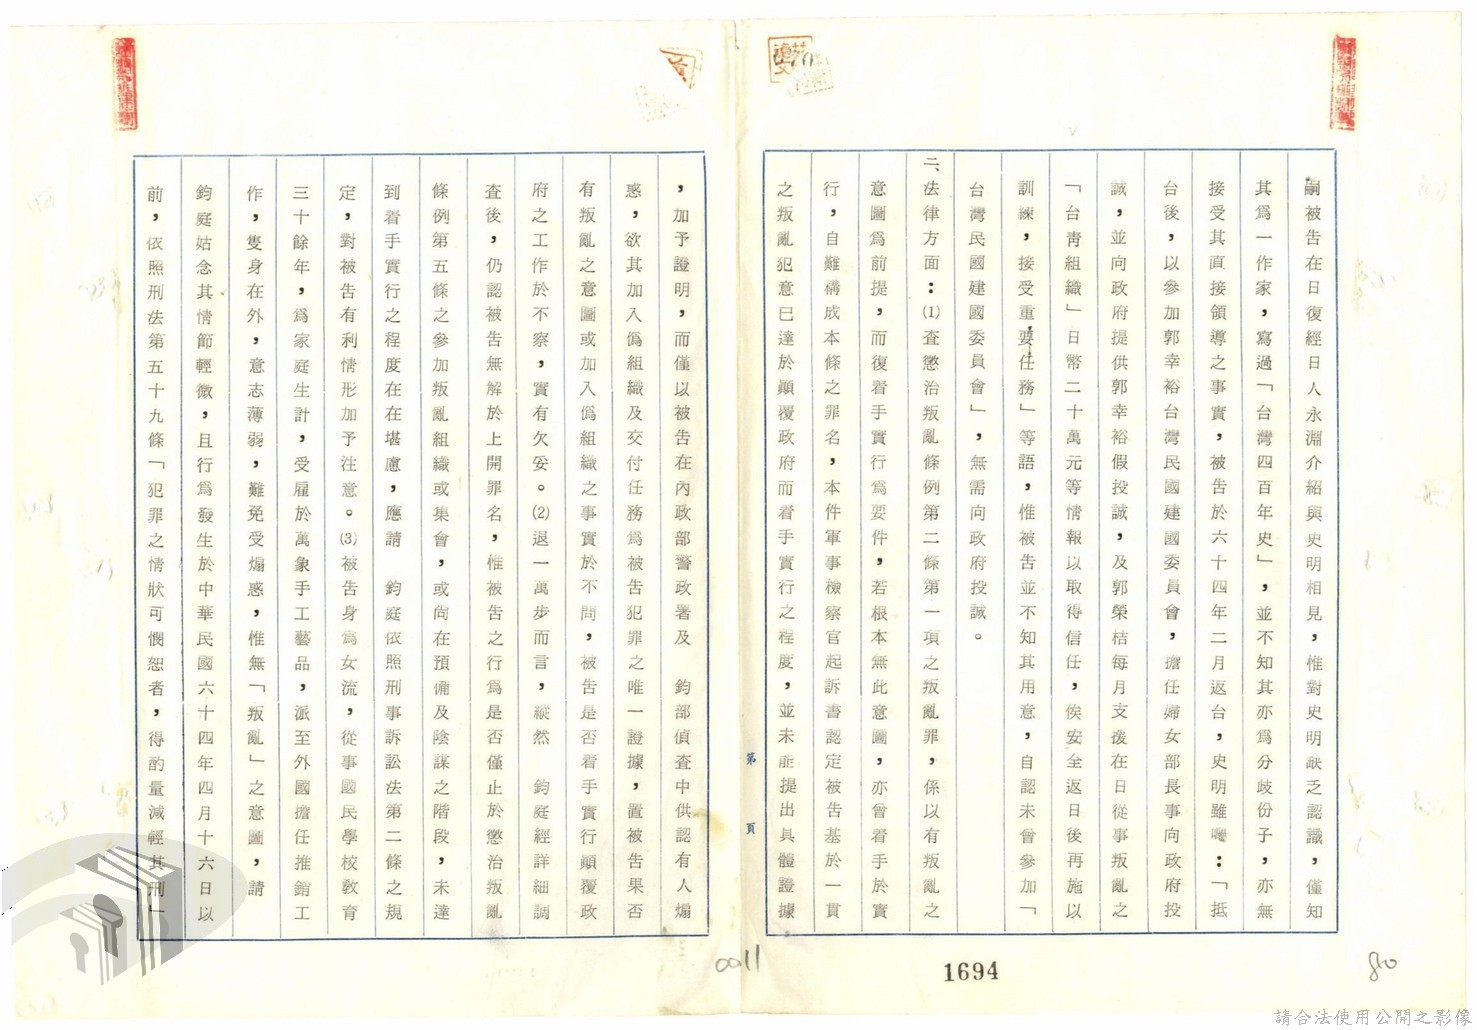 嗣被告在日復經日人永淵介紹與史明相見，惟對史明缺乏認識，僅知
其爲一作家，寫過「台灣四百年史」，並不知其亦爲分歧份子，亦無
接受其直接領導之事實，被告於六十四年二月返台，史明雖囑：「抵
台後，以參加郭幸裕台灣民國建國委員會，擔任婦女部長事向政府投
誠，並向政府提供郭幸裕假投誠，及郭榮桔每月支援在日從事叛亂之
「台青組織」日幣二十萬元等情報以取得信任，俟安全返日後再施以
訓練，接受重要任務」等語，惟被告並不知其用意，自認未曾參加「
台灣民國建國委員會」，無需向政府投誠。
二、法律方面：⑴查懲治叛亂條例第二條第一項之叛亂罪，係以有叛亂之
意圖爲前提，而復着手實行爲要件，若根本無此意圖，亦曾着手於實
行，自難構成本條之罪名，本件軍事檢察官起訴書認定被告基於一貫
之叛亂犯意已達於顚覆政府而着手實行之程度，並未能提出具體證據
，加予證明，而僅以被告在內政部警政署及　鈞部偵查中供認有人煽
惑，欲其加入僞組織及交付任務爲被告犯罪之唯一證據，置被告果否
有叛亂之意圖或加入僞組織之事實於不問，被告是否着手實行顚覆政
府之工作於不察，實有欠妥。⑵退一萬步而言，縱然　鈞庭經詳細調
查後，仍認被告無解於上開罪名，惟被告之行爲是否僅止於懲治叛亂
條例第五條之參加叛亂組織或集會，或尙在預備及陰謀之階段，未達
到着手實行之程度在在堪慮，應請　鈞庭依照刑事訴訟法第二條之規
定，對被告有利情形加予注意。⑶被告身爲女流，從事國民學校敎育
三十餘年，爲家庭生計，受雇於萬象手工藝品，派至外國擔任推銷工
作，隻身在外，意志薄弱，難免受煽惑，惟無「叛亂」之意圖，請
鈞庭姑念其情節輕微，且行爲發生於中華民國六十四年四月十六日以
前，依照刑法第五十九條「犯罪之情狀可憫恕者，得酌量減輕其刑」
第　頁
0011
1694
80
請合法使用公開之影像